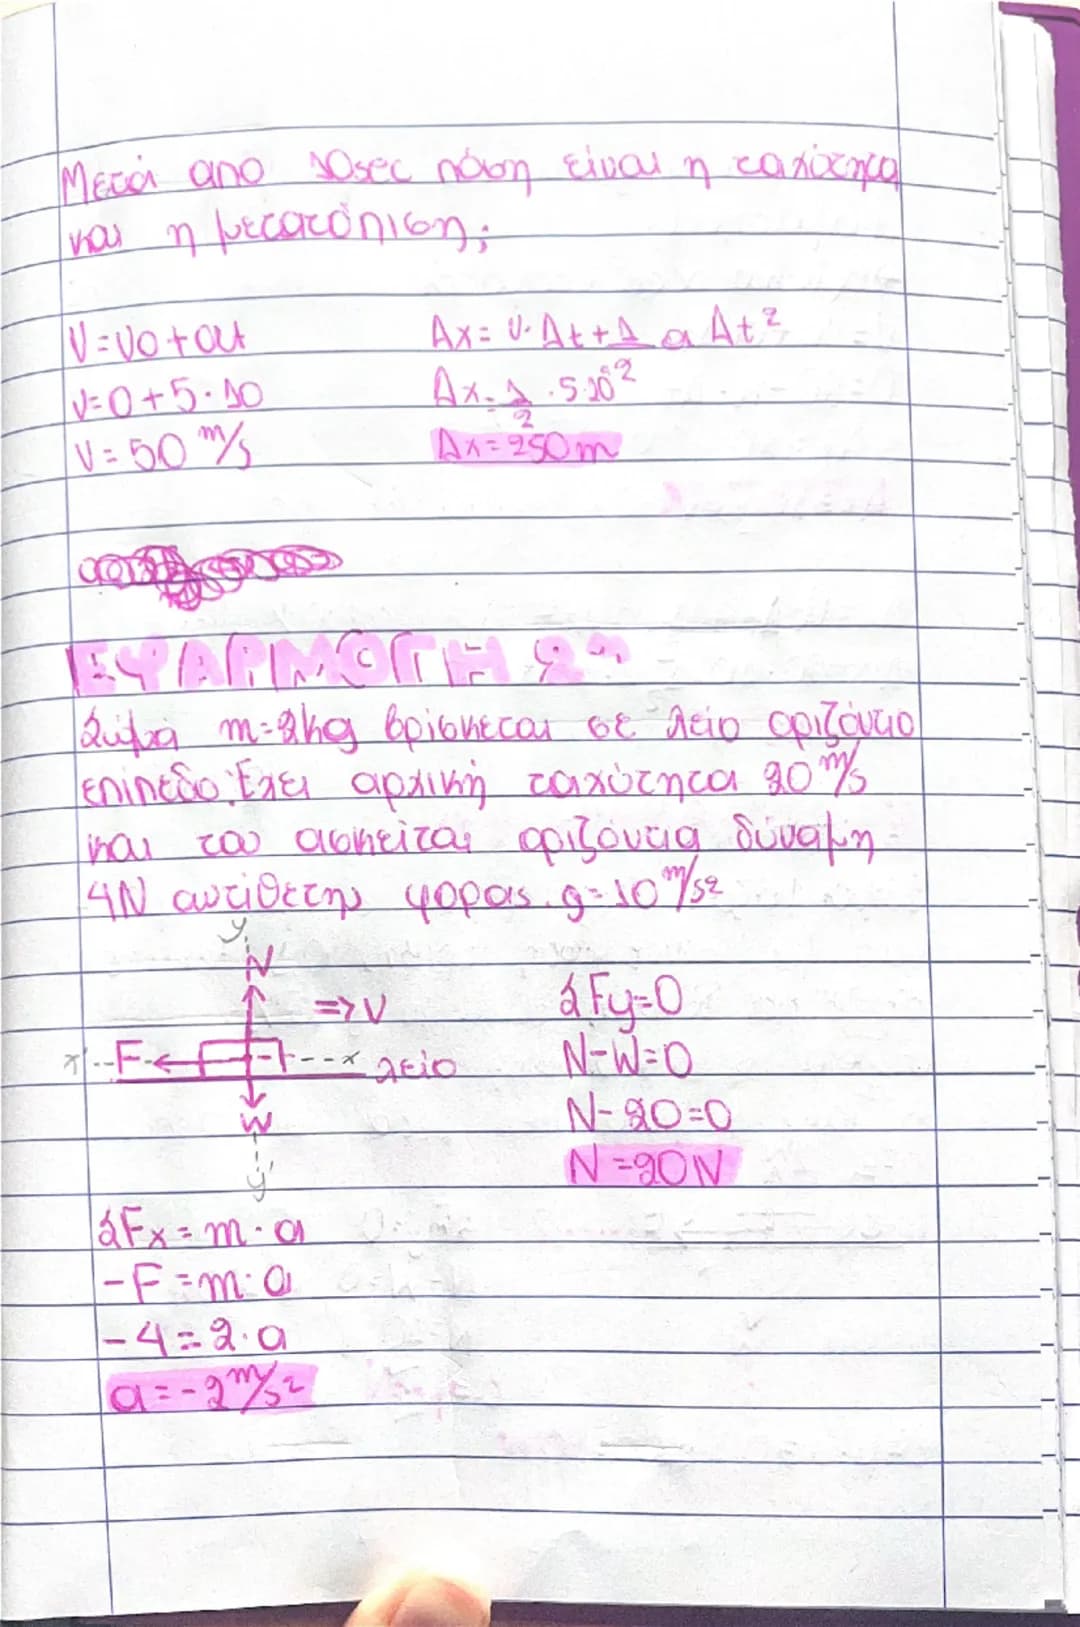 Μετά απο 10sec πόση είναι η ταχύτητα
και η μετατόπιση;
V=V0+at
Δx= υ·Δt+1 a Δt²
V=0+5·10
Δx=1/2 ·5·10²
V=50 m/s
Δx=250m
ΕΦΑΡΜΟΓΗ 2η
Σώμα m=2kg βρίσκεται σε λείο οριζόντιο
επίπεδο. Έχει αρχική ταχύτητα 20 m/s
και του ασκείται οριζόντια δύναμη
4N αντίθετης φοράς. g=10 m/s2
y
N
=>V
x' F x λείο
W
y'
ΣFy=0
N-W=0
N-20=0
N=20N
ΣFx=m·a
-F=m·a
-4=2·a
a=-2 m/s2